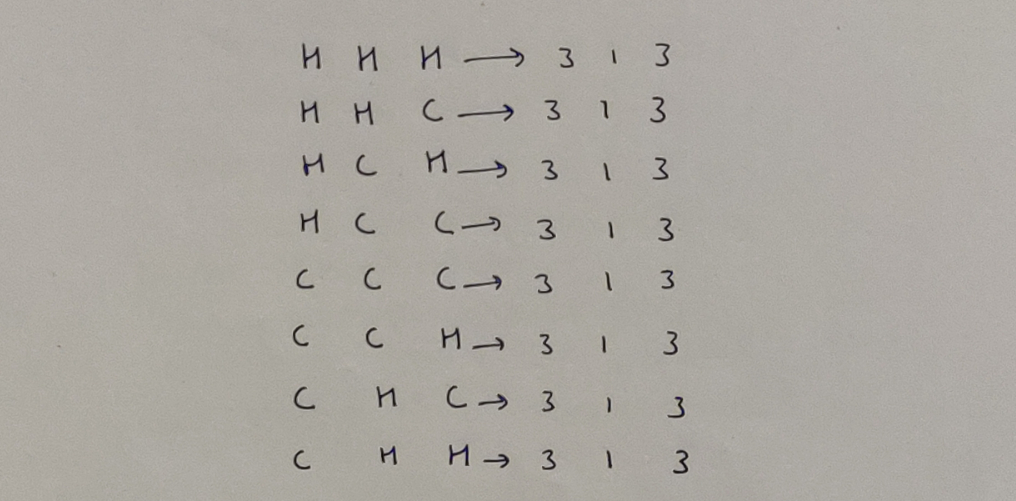 H H H → 3 1 3
H H C → 3 1 3
H C H → 3 1 3
H C C → 3 1 3
C C C → 3 1 3
C C H → 3 1 3
C H C → 3 1 3
C H H → 3 1 3